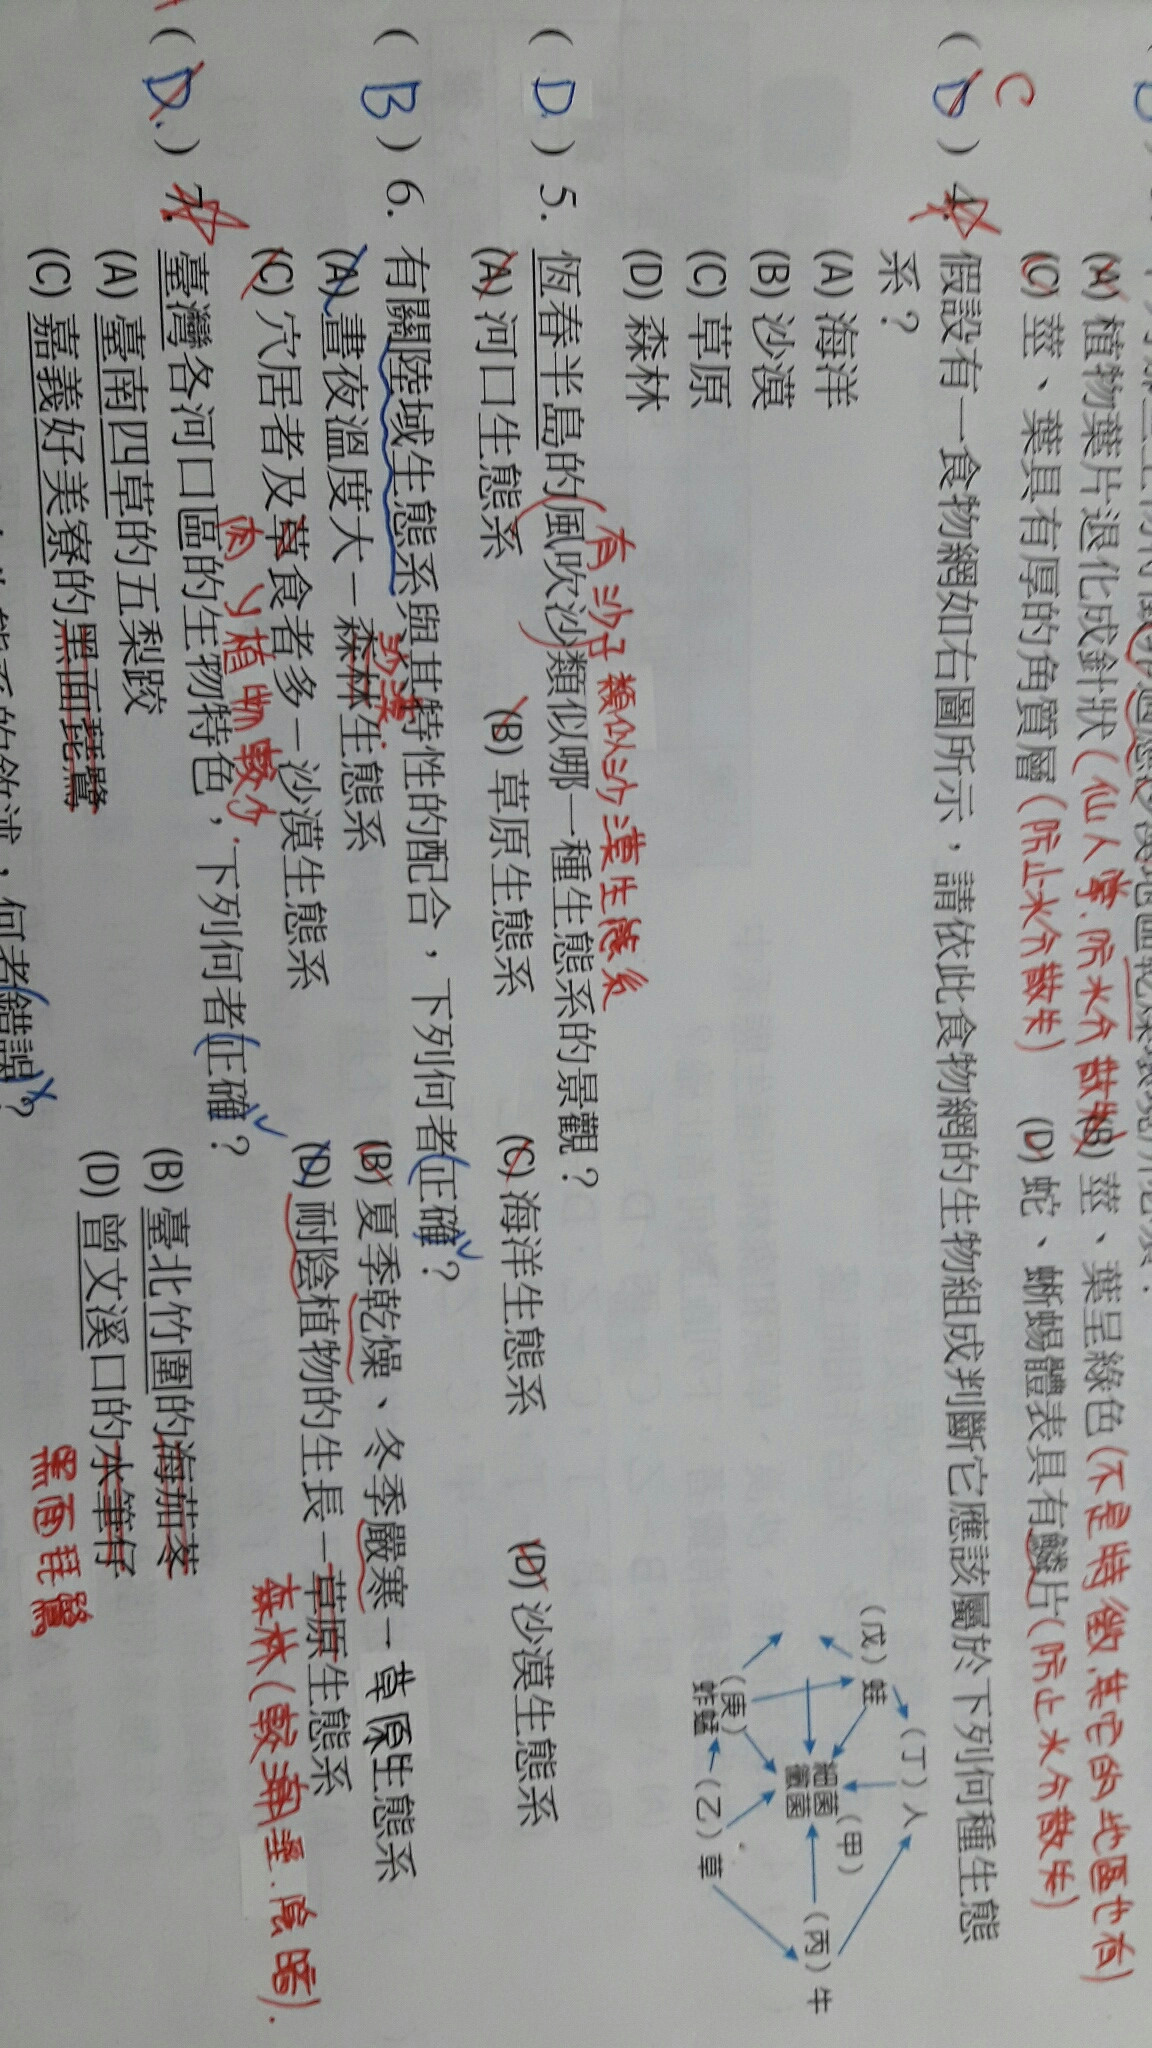 (A) 植物葉片退化成針狀(仙人掌.防水分散失) (B) 莖、葉呈綠色(不是特徵.其它的地區也有)
(C) 莖、葉具有厚的角質層(防止水分散失) (D) 蛇、蜥蜴體表具有鱗片(防止水分散失)
C
( D ) 4. 假設有一食物網如右圖所示,請依此食物網的生物組成判斷它應該屬於下列何種生態
系?
(A) 海洋
(B) 沙漠
(C) 草原
(D) 森林
(丁)人
(戊)蛙
(甲)
細菌
黴菌
(丙)牛
(庚)
蚱蜢
(乙)草
有沙子類似沙漠生態系
( D ) 5. 恆春半島的風吹沙類似哪一種生態系的景觀?
(A) 河口生態系 (B) 草原生態系 (C) 海洋生態系 (D) 沙漠生態系
( B ) 6. 有關陸域生態系與其特性的配合,下列何者正確?
沙漠
(A) 晝夜溫度大-森林生態系 (B) 夏季乾燥、冬季嚴寒-草原生態系
(C) 穴居者及草食者多-沙漠生態系 (D) 耐陰植物的生長-草原生態系
肉 植物較少.
森林(較潮溼.陰暗).
( D ) 7. 臺灣各河口區的生物特色,下列何者正確?
(A) 臺南四草的五梨跤 (B) 臺北竹圍的海茄苳
(C) 嘉義好美寮的黑面琵鷺 (D) 曾文溪口的水筆仔
黑面琵鷺
何者錯誤?